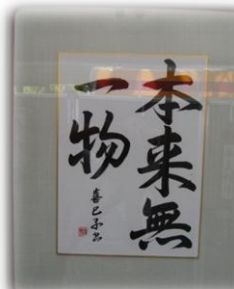 本来無
一物
喜巳子書